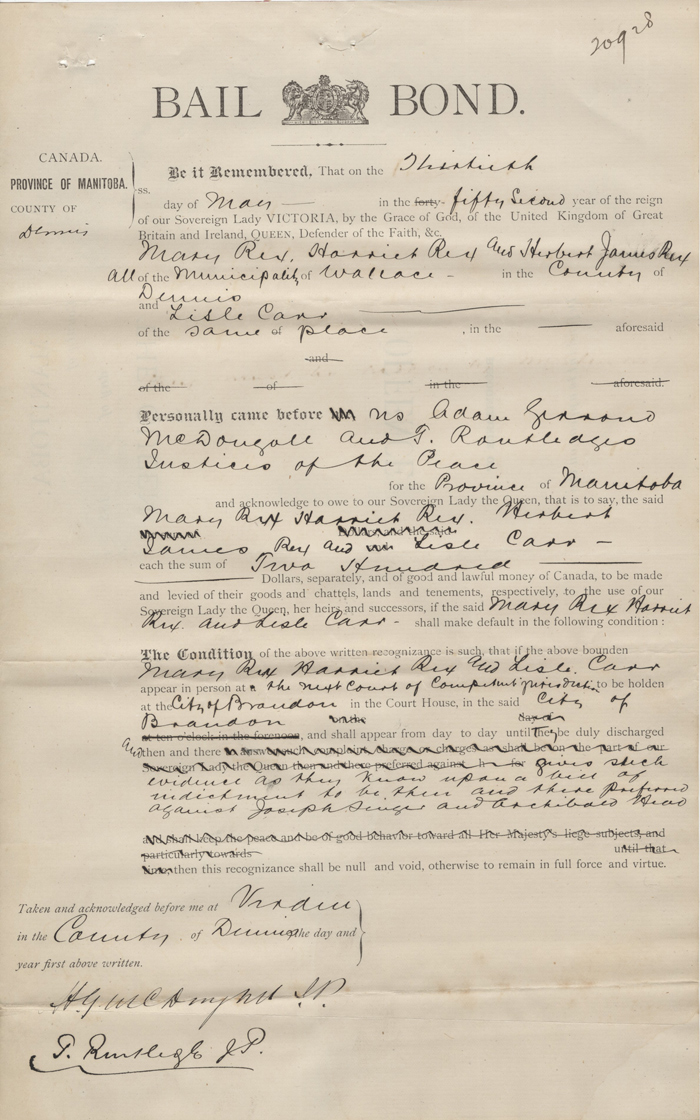 209 28
BAIL BOND.
CANADA.
PROVINCE OF MANITOBA.
COUNTY OF
Dennis
ss.
Be it Remembered, That on the Thirtieth
day of May — in the forty- fifty Second year of the reign
of our Sovereign Lady VICTORIA, by the Grace of God, of the United Kingdom of Great
Britain and Ireland, QUEEN, Defender of the Faith, &c.
Mary Rex, Harriet Rex and Herbert James Rex
All of the Municipality of Wallace - in the County of
Dennis
and Lisle Carr
of the same of place , in the — aforesaid
and
of the of in the aforesaid.
Personally came before us Adam
McDougall and T. Routledge
Justices of the Peace
for the Province of Manitoba
and acknowledge to owe to our Sovereign Lady the Queen, that is to say, the said
Mary Rex Harriet Rex. Herbert
James Rex and Lisle Carr —
each the sum of Two Hundred
Dollars, separately, and of good and lawful money of Canada, to be made
and levied of their goods and chattels, lands and tenements, respectively, to the use of our
Sovereign Lady the Queen, her heirs and successors, if the said Mary Rex Harriet
Rex. and Lisle Carr - shall make default in the following condition :
The Condition of the above written recognizance is such, that if the above bounden
Mary Rex Harriet Rex and Lisle Carr
appear in person at the next Court of Competent jurisdiction to be holden
at the City of Brandon in the Court House, in the said City of
Brandon
at ten o'clock in the forenoon, and shall appear from day to day until they be duly discharged
And then and there answer such complaint, charge or charges as shall be on the part of our
Sovereign Lady the Queen then and there preferred against h for gives such
evidence as they know upon a bill of
indictment to be then and there preferred
against Joseph Singer and Archibald Head
and shall keep the peace and be of good behavior toward all Her Majesty's liege subjects, and
particularly towards until that
time, then this recognizance shall be null and void, otherwise to remain in full force and virtue.
Taken and acknowledged before me at Virden
in the County of Dennis the day and
year first above written.
J.P.
T. Routledge J.P.